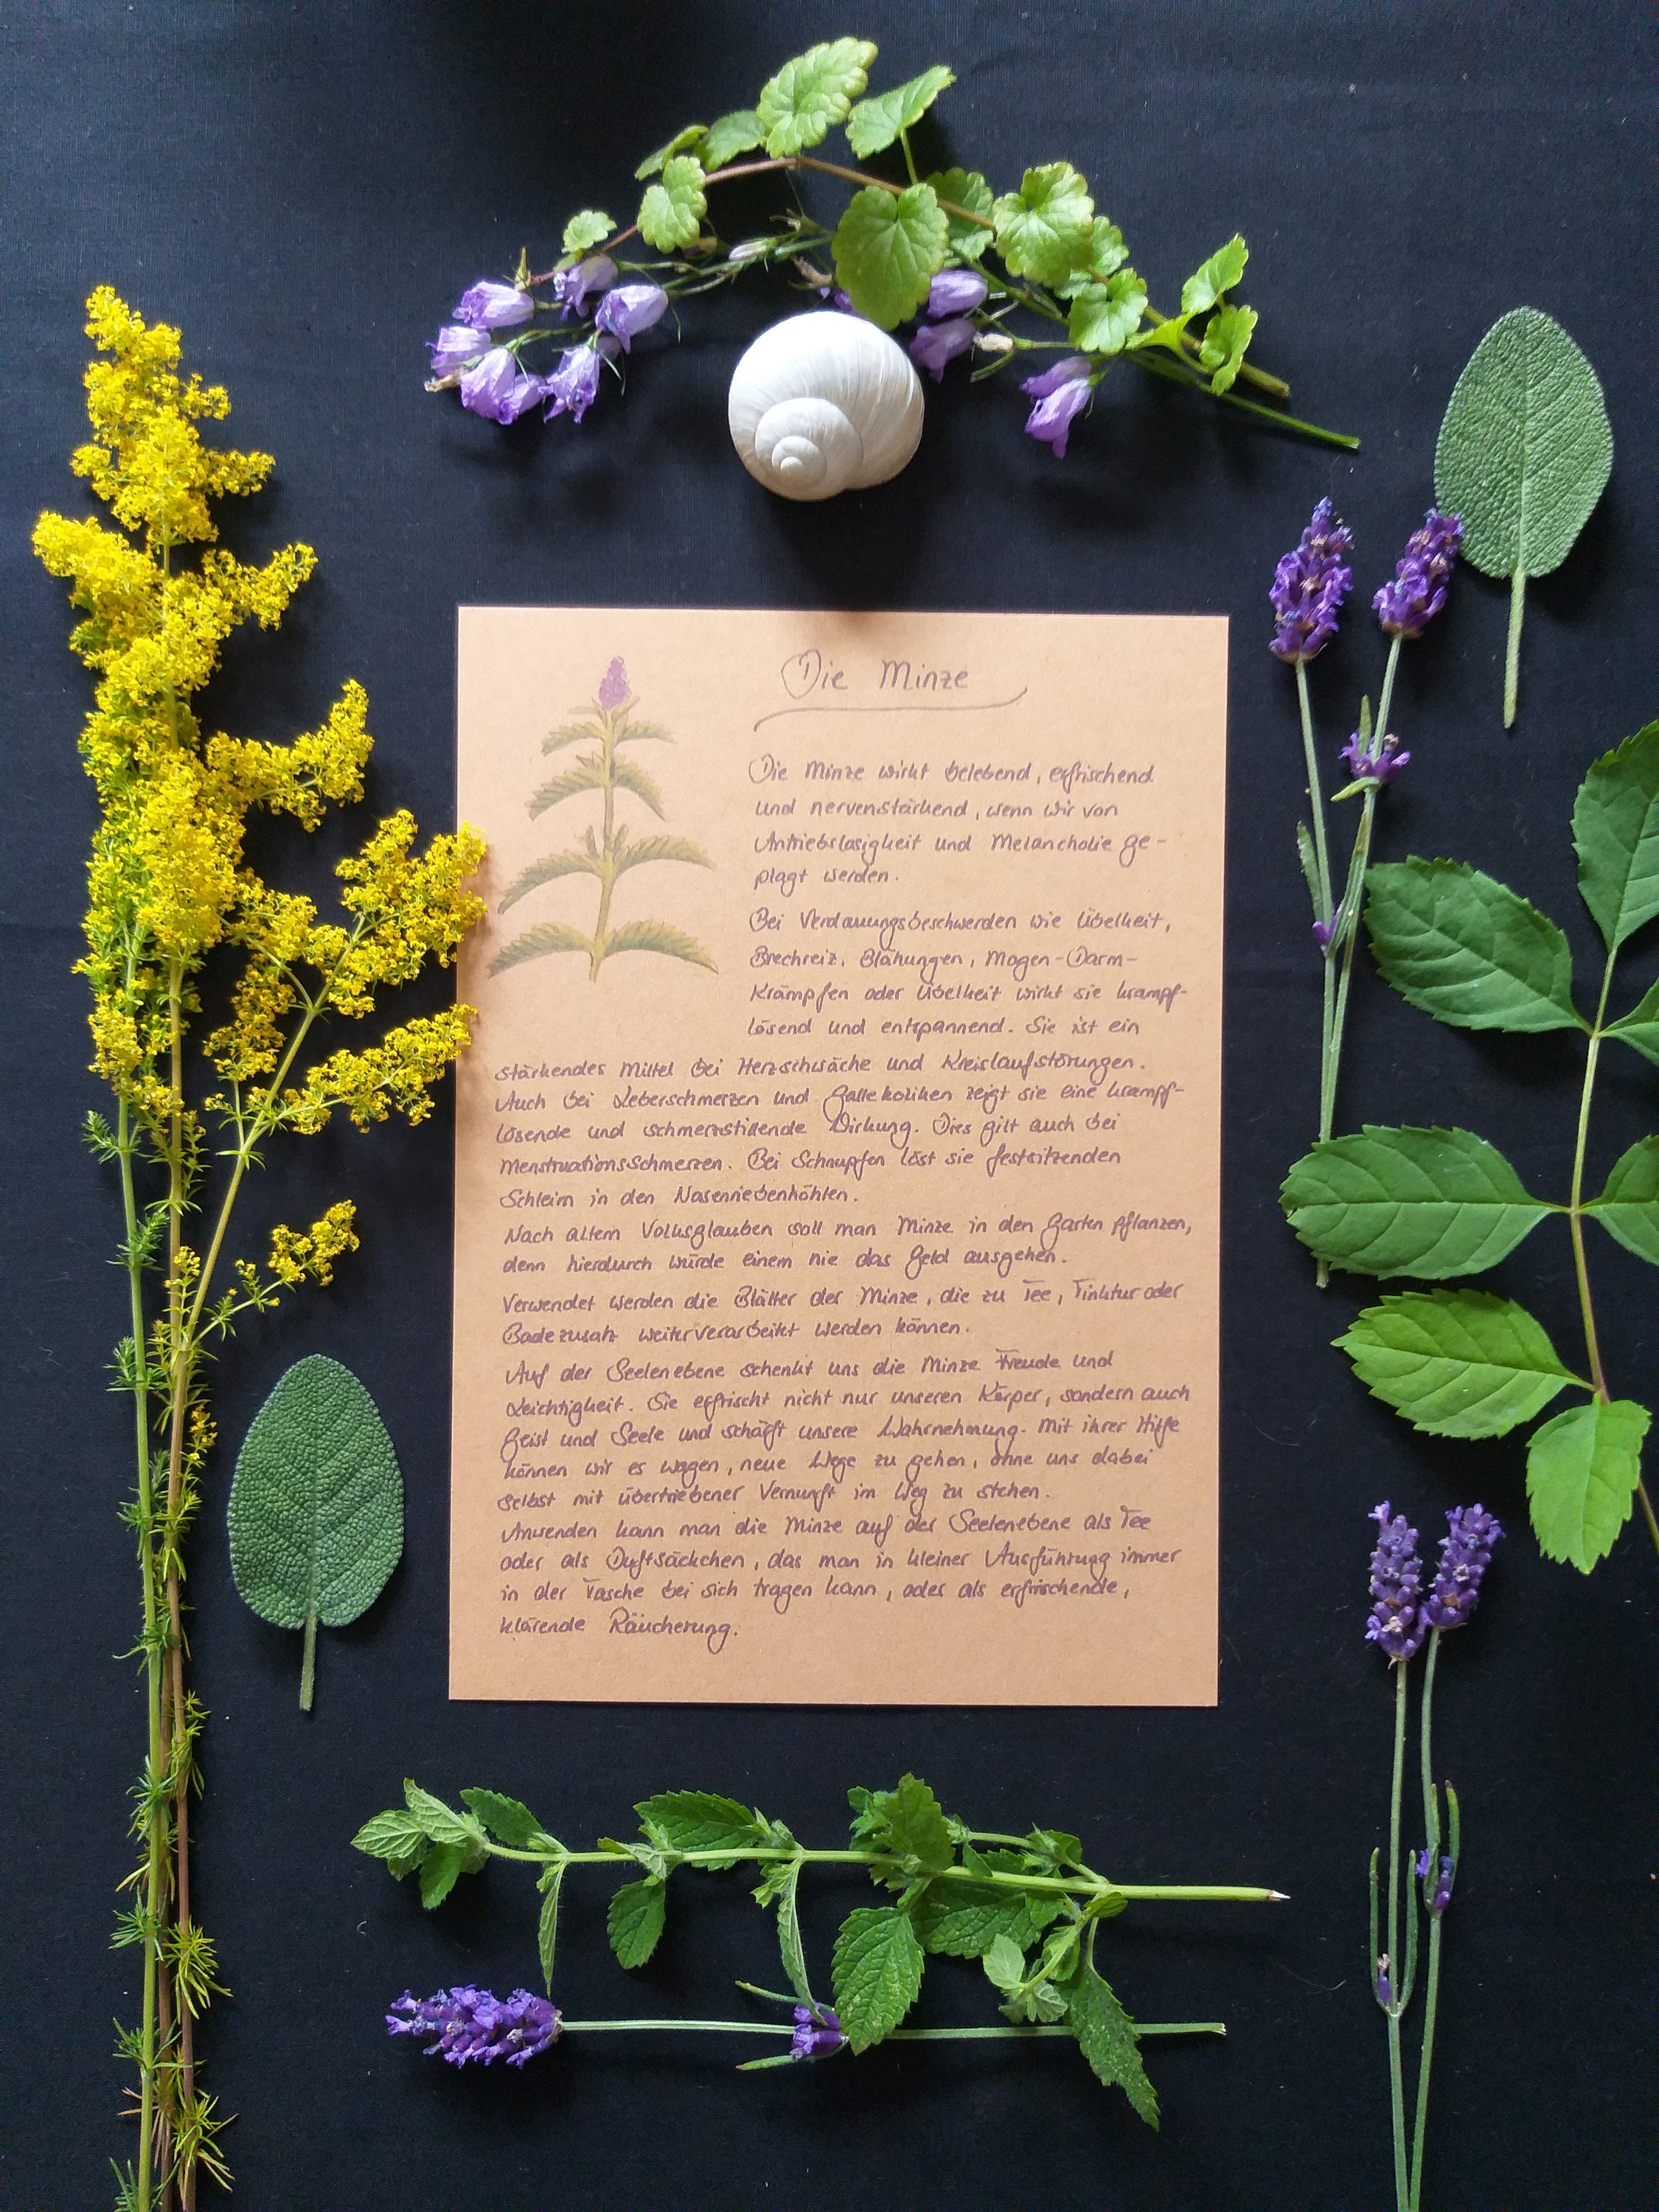 Die Minze
Die Minze wirkt belebend, erfrischend
und nervenstärkend, wenn wir von
Antriebslosigkeit und Melancholie ge-
plagt werden.
Bei Verdauungsbeschwerden wie Übelkeit,
Brechreiz, Blähungen, Magen-Darm-
Krämpfen oder Übelkeit wirkt sie krampf-
lösend und entspannend. Sie ist ein
stärkendes Mittel bei Herzschwäche und Kreislaufstörungen.
Auch bei Leberschmerzen und Gallekoliken zeigt sie eine krampf-
lösende und schmerzstillende Wirkung. Dies gilt auch bei
Menstruationsschmerzen. Bei Schnupfen löst sie festsitzenden
Schleim in den Nasennebenhöhlen.
Nach altem Volksglauben soll man Minze in den Garten pflanzen,
denn hierdurch würde einem nie das Geld ausgehen.
Verwendet werden die Blätter der Minze, die zu Tee, Tinktur oder
Badezusatz weiterverarbeitet werden können.
Auf der Seelenebene schenkt uns die Minze Freude und
Leichtigkeit. Sie erfrischt nicht nur unseren Körper, sondern auch
Geist und Seele und schärft unsere Wahrnehmung. Mit ihrer Hilfe
können wir es wagen, neue Wege zu gehen, ohne uns dabei
selbst mit übertriebener Vernunft im Weg zu stehen.
Anwenden kann man die Minze auf der Seelenebene als Tee
oder als Duftsäckchen, das man in kleiner Ausführung immer
in der Tasche bei sich tragen kann, oder als erfrischende,
klärende Räucherung.